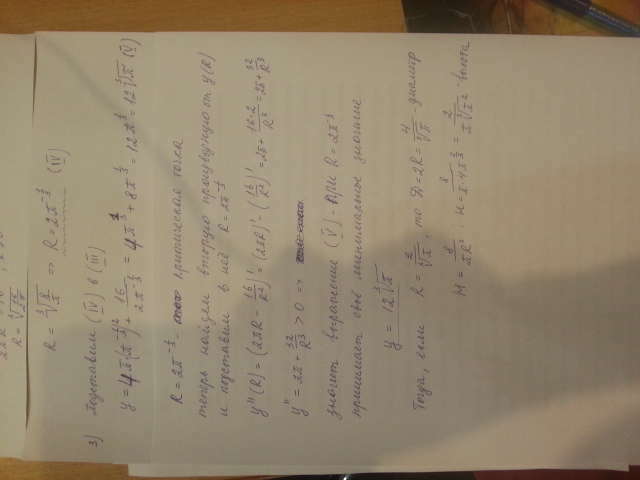 R = ∛(8/π) => R = 2π^(-1/3) (IV)
3) Подставим (IV) в (III)
y = 4π(π^(-1/3))² + 16/(2π^(-1/3)) = 4π^(1/3) + 8π^(1/3) = 12π^(1/3) = 12∛π (V)
R = 2π^(-1/3) критическая точка
теперь найдем вторую производную от y(R)
и подставим в неё R = 2π^(-1/3)
y''(R) = (2πR - 16/R²)' = (2πR)' - (16/R²)' = 2π + 16·2/R³ = 2π + 32/R³
y'' = 2π + 32/R³ > 0 =>
значит выражение (V) - при R = 2π^(-1/3)
принимает свое минимальное значение
y = 12∛π
Тогда, если R = 2/∛π, то D = 2R = 4/∛π - диаметр
H = 8/πR²; H = 8/(π·4π^(-2/3)) = - высота